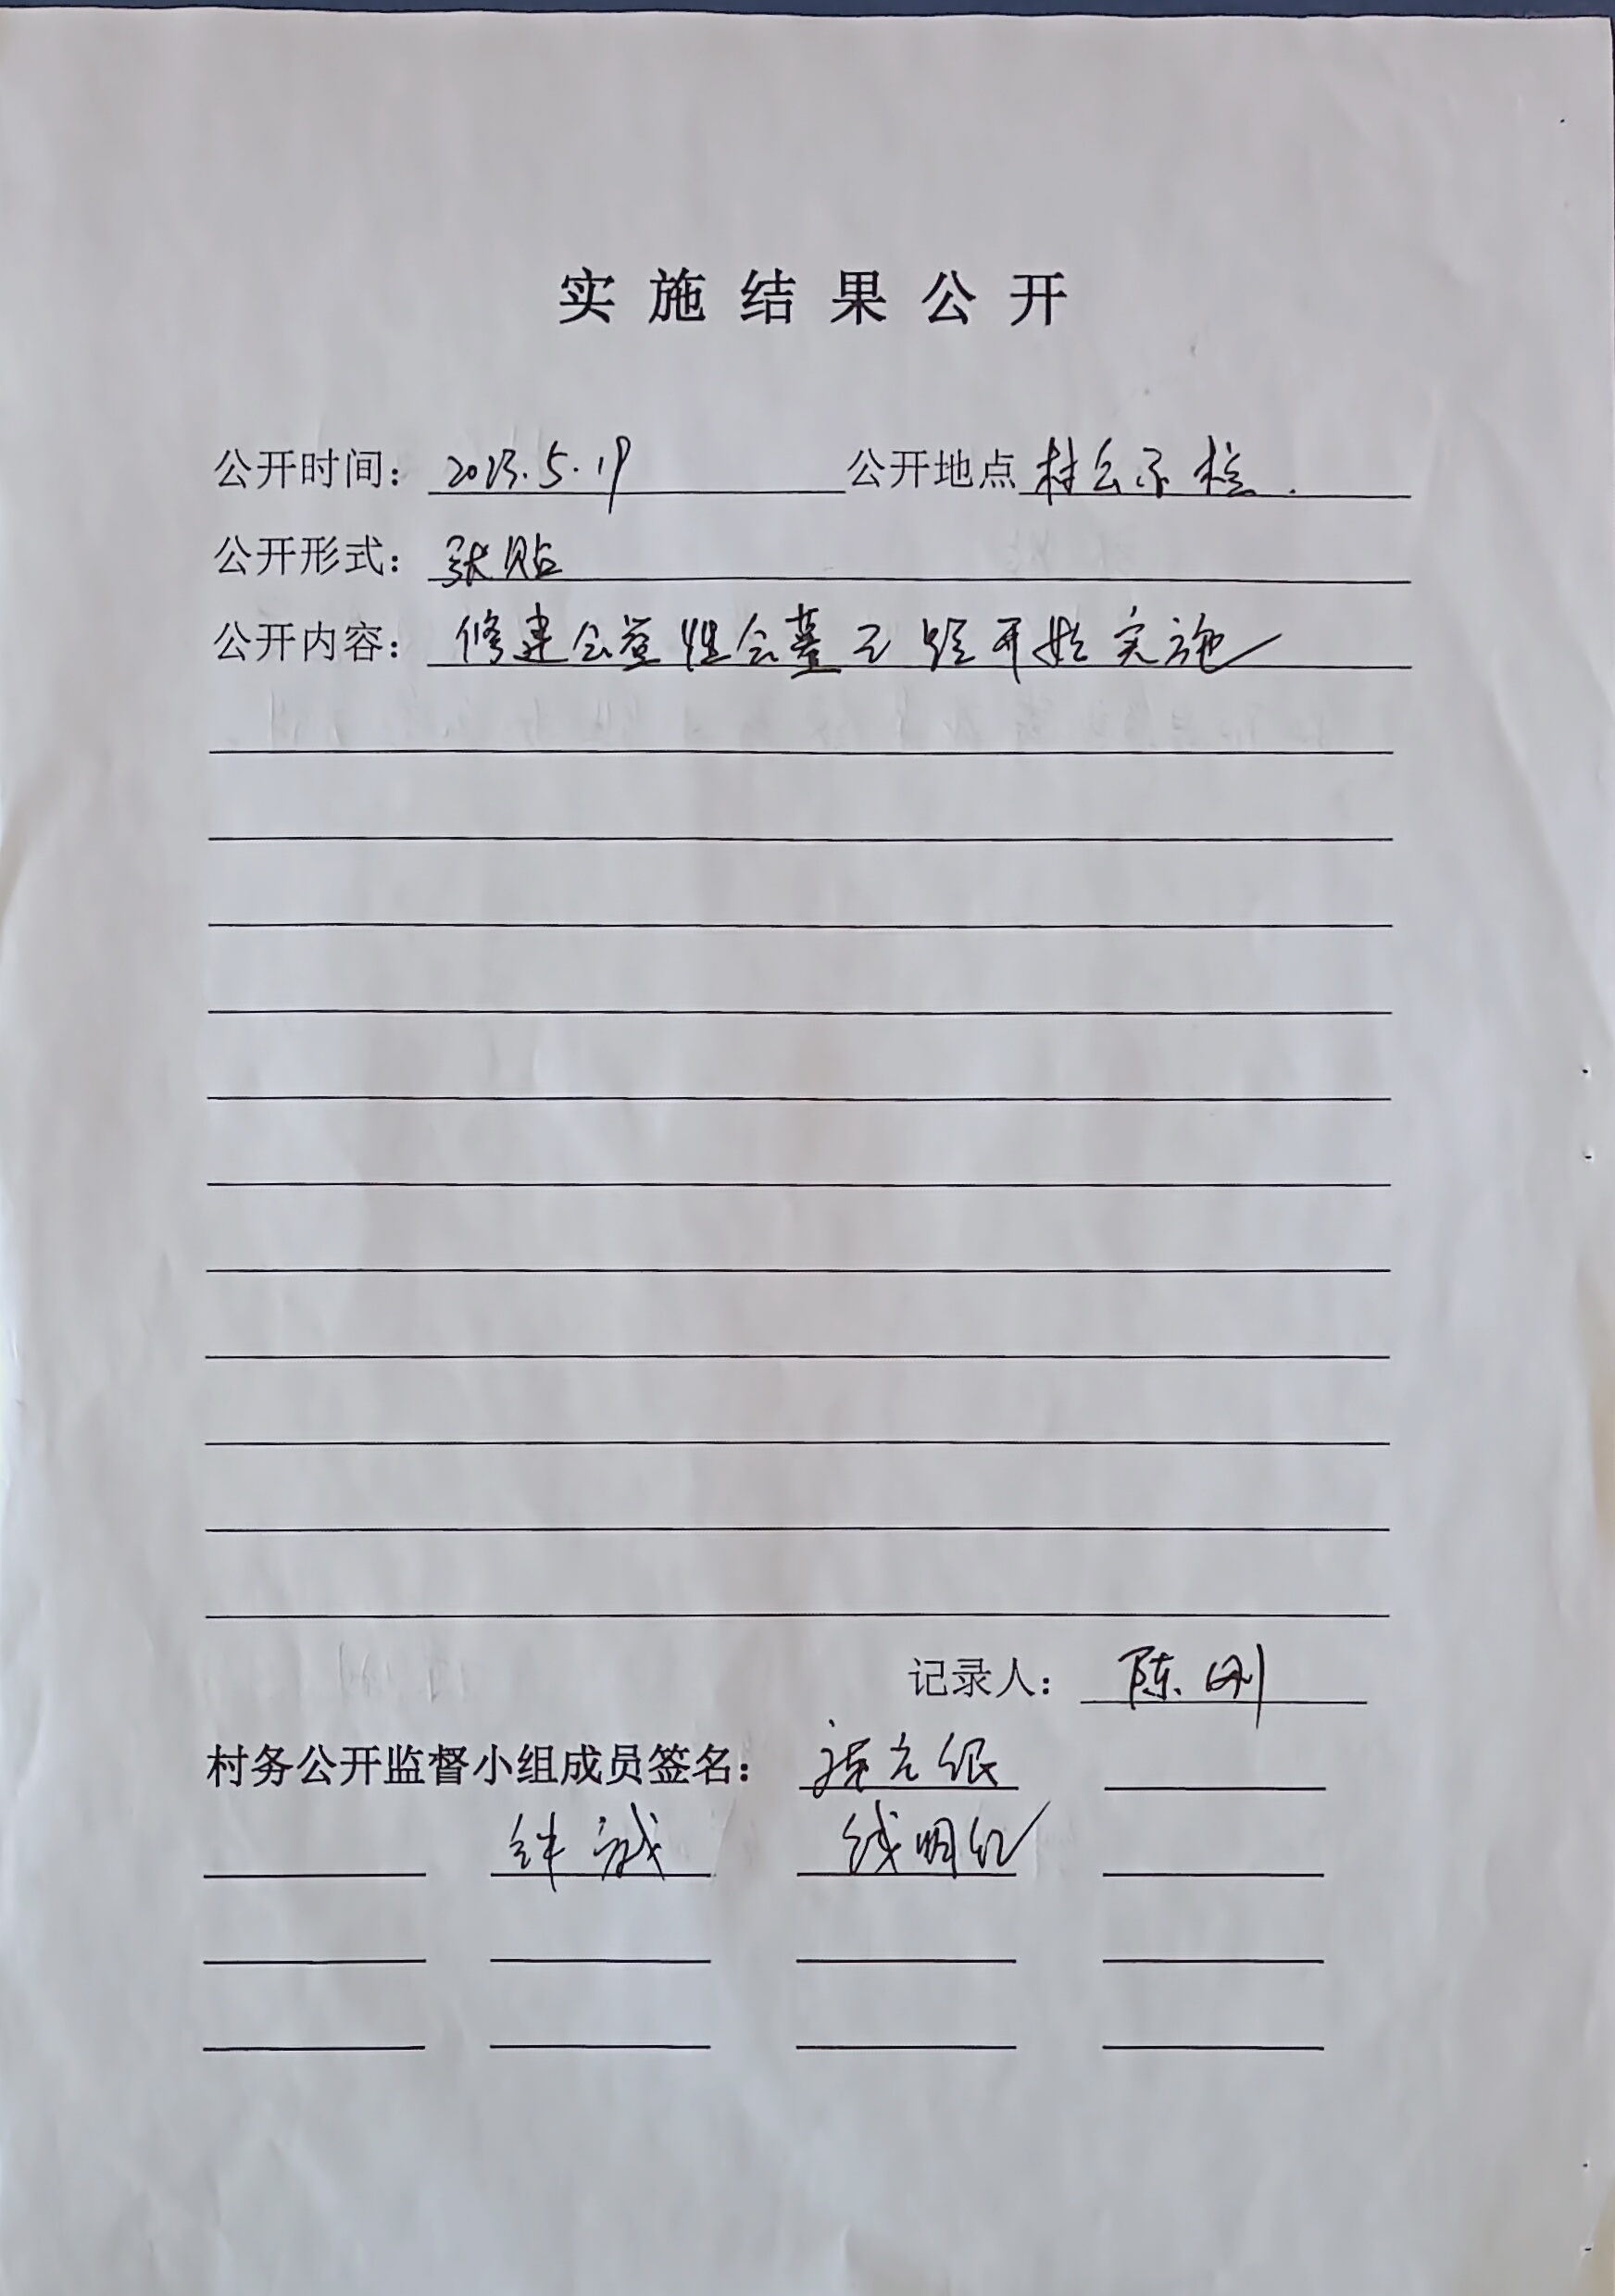 实施结果公开
公开时间：2023.5.19 公开地点 村公示栏.
公开形式：张贴
公开内容：修建公益性公墓已经开始实施
记录人：陈刚
村务公开监督小组成员签名：
钱明红